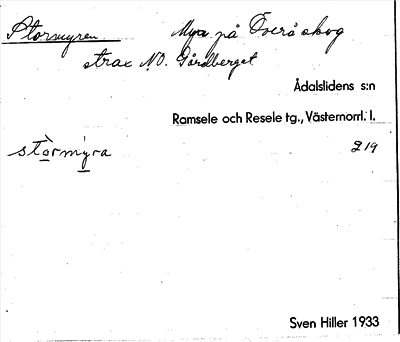 Stormyren. Myr på Överå skog
strax NO. Gårdberget
Ådalslidens s:n
Ramsele och Resele tg., Västernorrl. l.
stòrmýra 219
Sven Hiller 1933